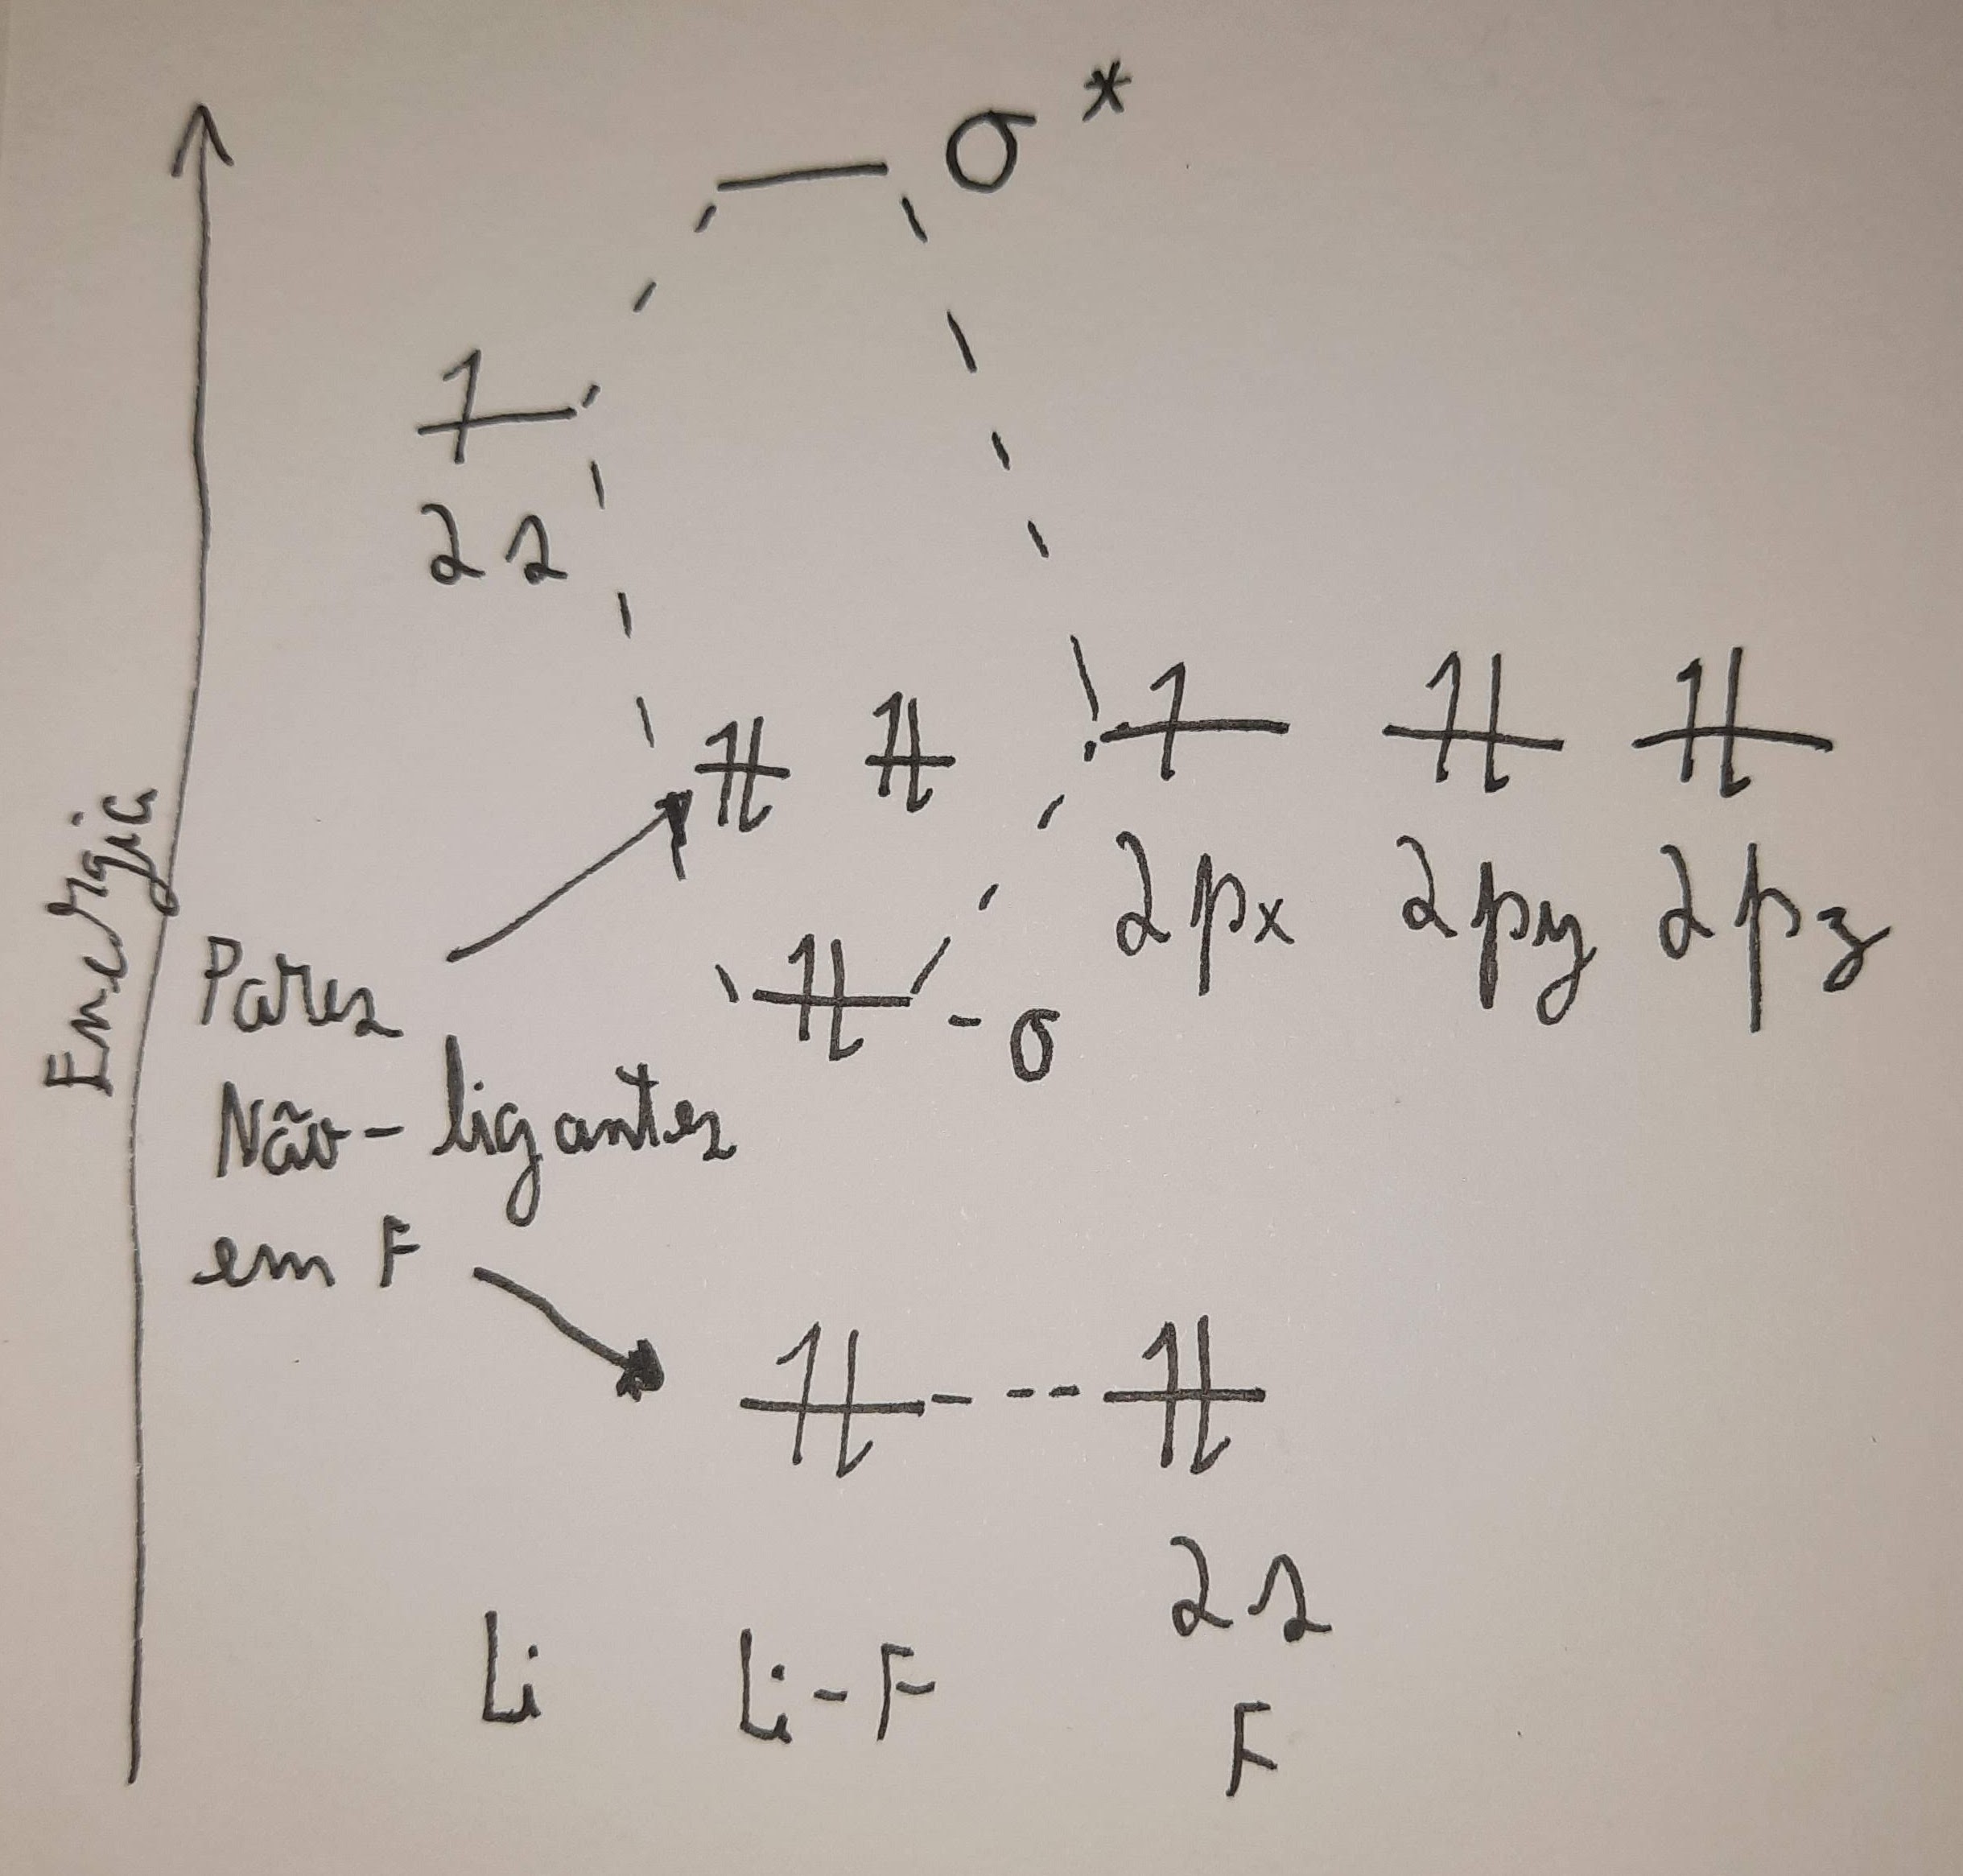 σ*
2s
Energia
2px 2py 2pz
Pares
σ
Não-ligantes
em F
2s
Li Li-F
F